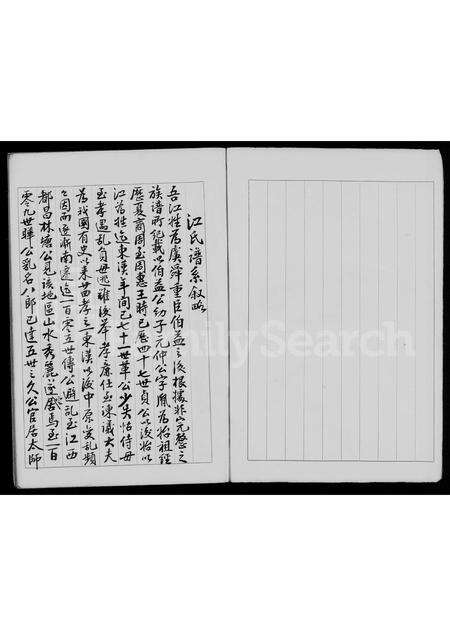 江氏譜系叙略
吾江姓為虞舜重臣伯益之後根據非完整之
族譜所記載以伯益公幼子元仲公字胤為始祖經
歷夏商周至周惠王時已歷四十七世貞公以後始以
江為姓迄東漢年間已七十一世革公少失怙侍母
至孝遇亂負母逃難後舉孝廉任至諫議大夫
為我國有史以來廿四孝之東漢以後中原变亂頻
因而逐漸南遷迄一百零五世傅公避乱至江西
都昌林塘公見該地區山水秀麗遂居焉至一百
零九世曄公乳名八郎已達五世之久公官居太師
FamilySearch